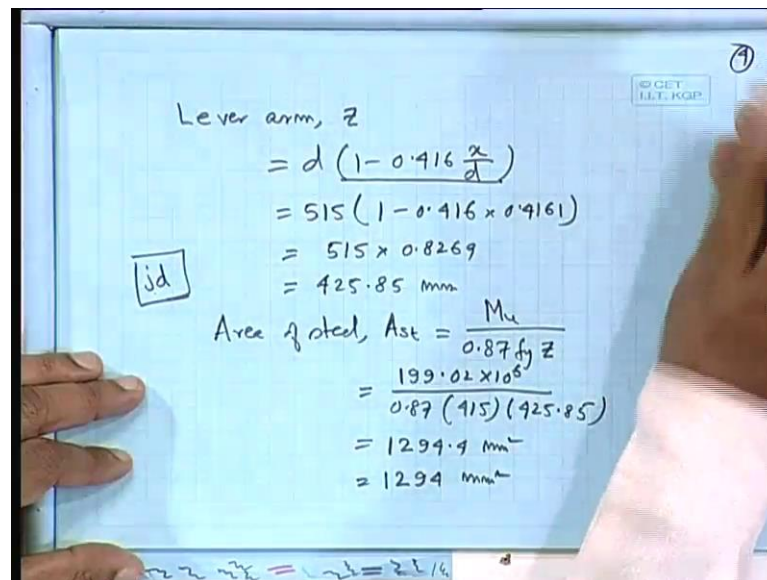 ④
© CET
I.I.T. KGP
Lever arm, z
= d (1 - 0.416 x/d)
= 515 (1 - 0.416 × 0.4161)
= 515 × 0.8269
jd
= 425.85 mm
Area of steel, Ast = Mu / 0.87 fy z
= 199.02 × 10⁶ / 0.87 (415) (425.85)
= 1294.4 mm²
= 1294 mm²